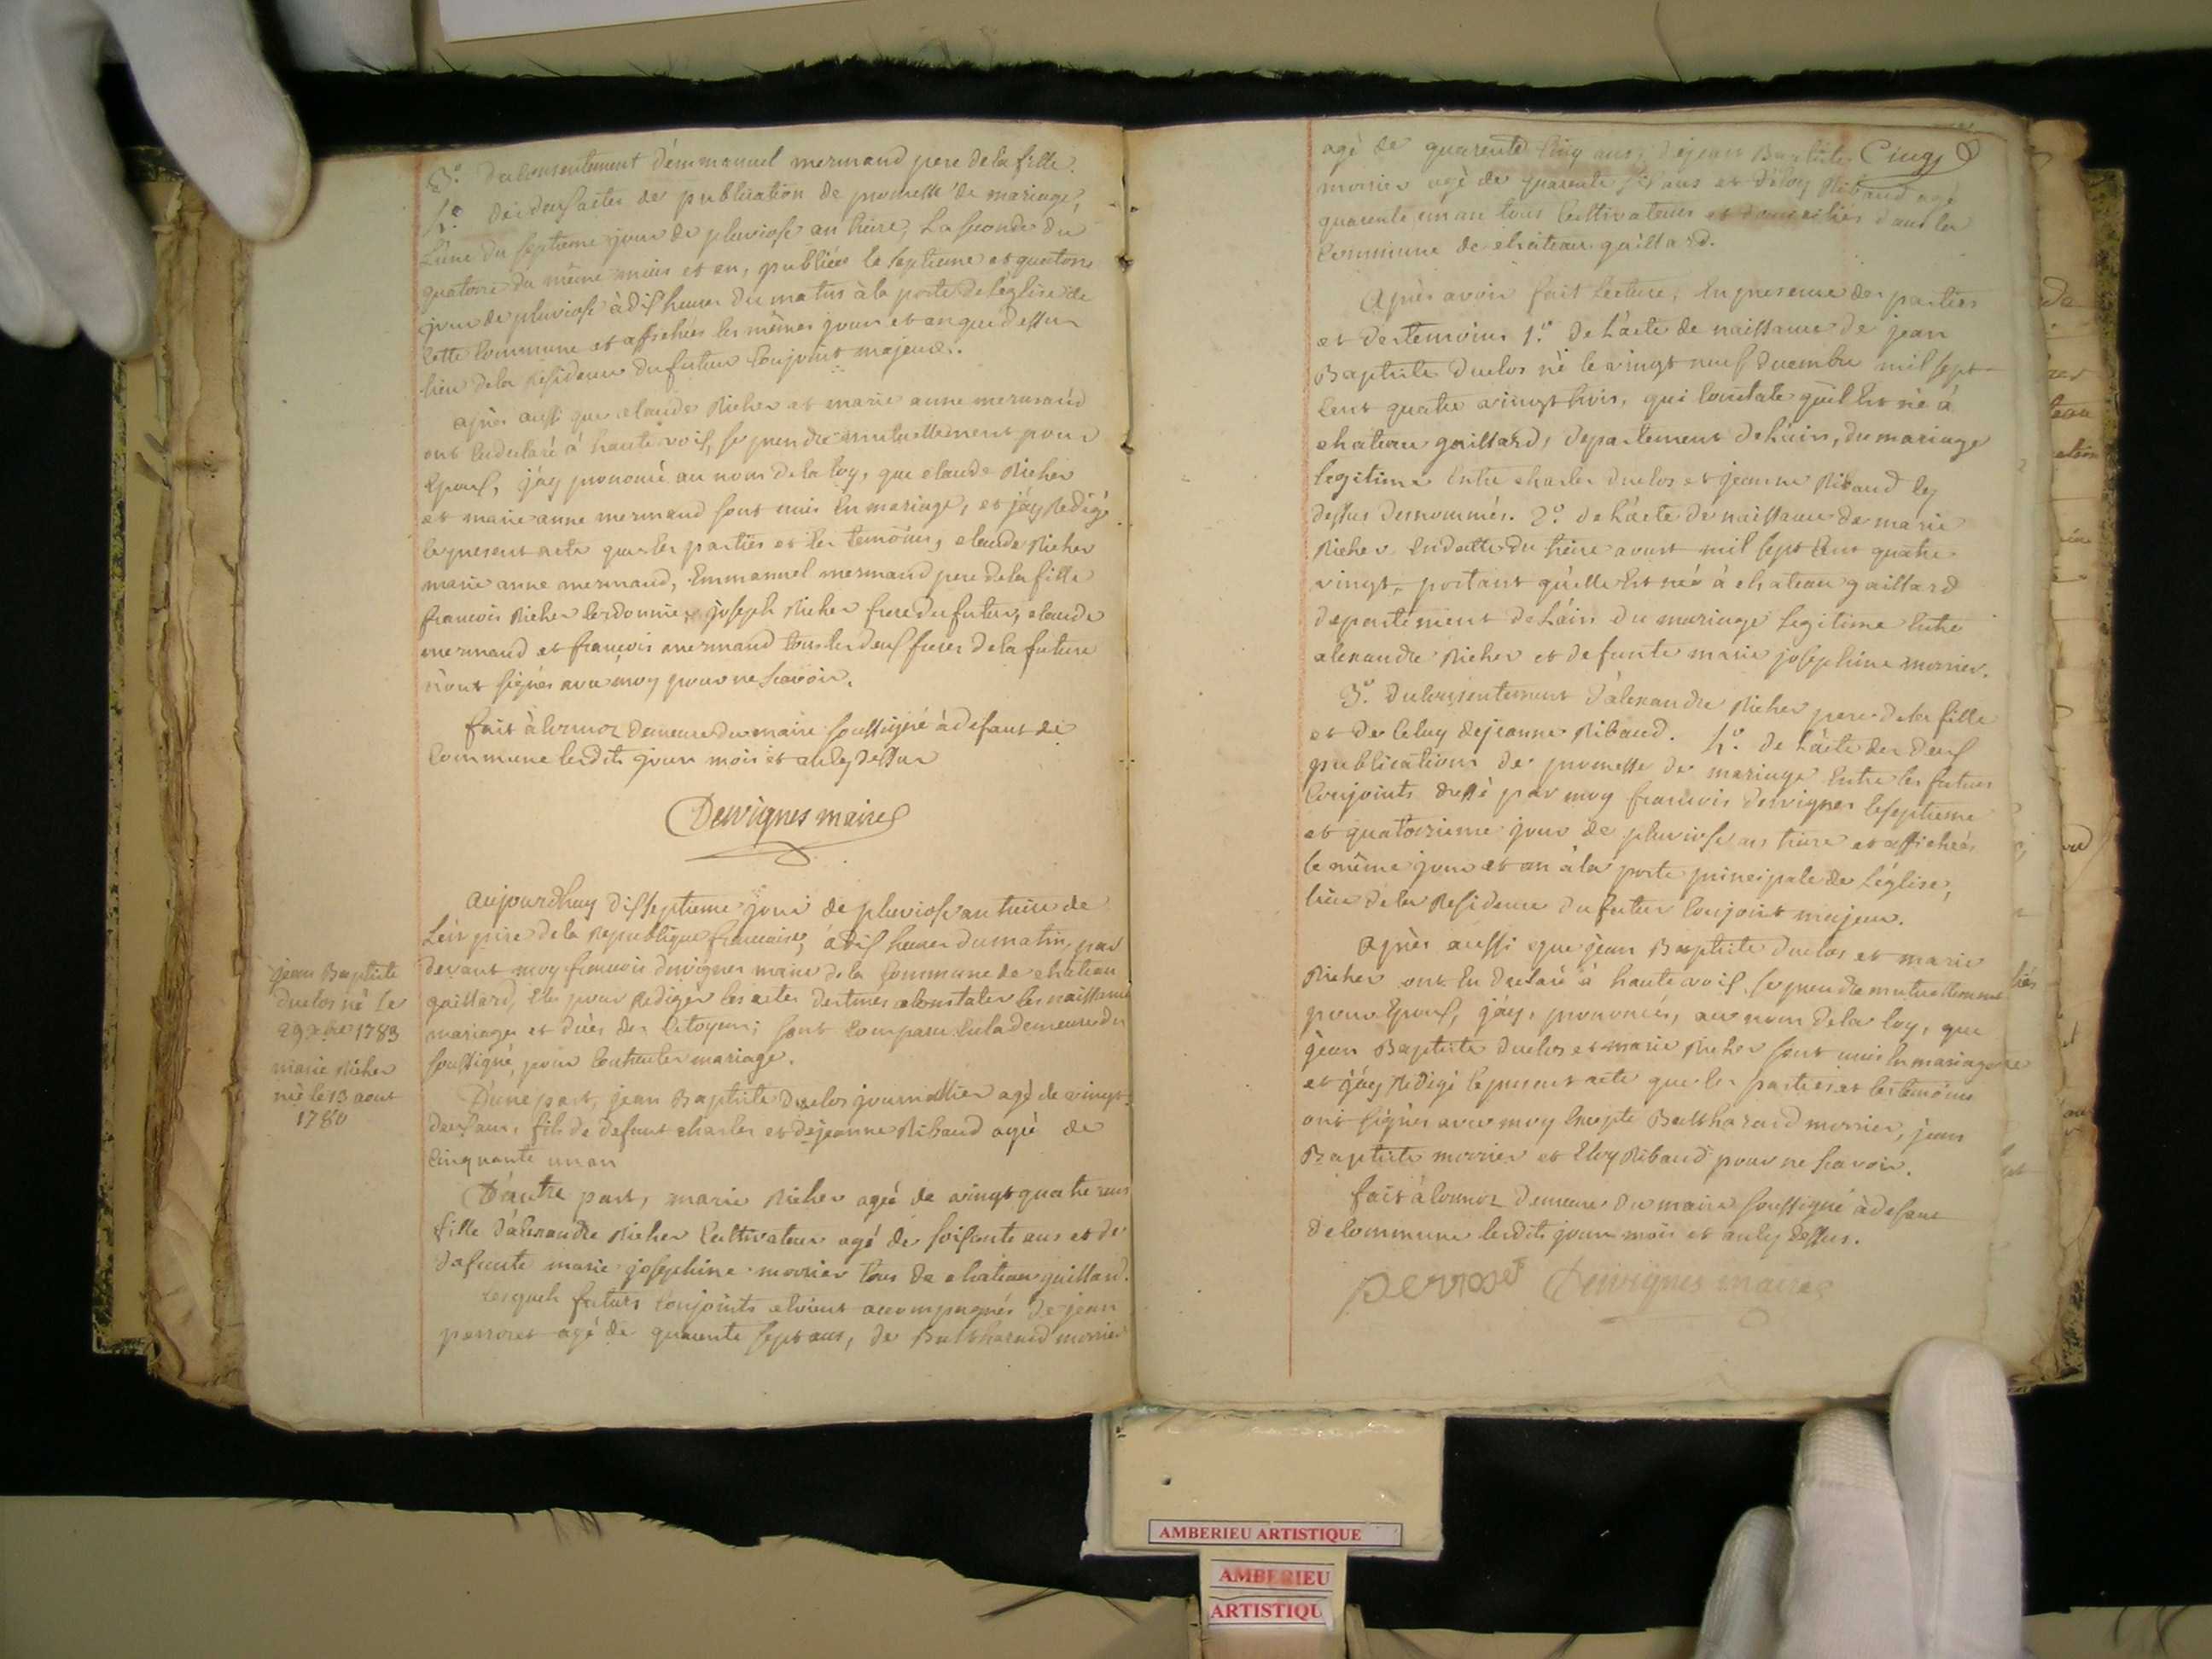 3.° du consentement d'emmanuel mermand pere de la fille.
4.° des deux actes de publication de promesse de mariage,
L'une du septieme jour de pluviose an treize, La seconde du
quatorze du même mois et an, publiées le septieme et quatorze
jour de pluviose à dix heures du matin à la porte de L'eglise de
cette Commune et affichées les mêmes jours et an que dessus
lieu de la Residence du futur Conjoint majeur.
après aussi que claude Richer et marie anne mermand
ont eu declaré à haute voix, se prendre mutuellement pour
Epoux, j'ay prononcé au nom de la loy, que claude Richer
et marie anne mermand sont unis En mariage, et j'ay Redigé
le present acte que les parties et les temoins, claude Richer
marie anne mermand, Emmanuel mermand pere de la fille
francois Richer joseph Richer frere du futur, claude
mermand et francois mermand tous les deux freres de la future
n'ont signés avec moy pour ne scavoir.
fait à Cormoz demeure du maire soussigné à defaut de
Commune lesdits jour mois et an cy dessus
Dervignes maire
aujourdhuy dixseptieme jour de pluviose an treize de
L'ere de la Republique francaise, à dix heures du matin, par
devant moy francois dervignes maire de la Commune de chateau
gaillard, Elu pour Rediger les actes destinés a Constater les naissances
mariages et décès des Citoyens; sont Comparu En la demeure du
soussigné, pour Contracter mariage.
jean Baptiste
duclos né Le
29 xbre 1783
marie Richer
née le 13 aout
1780
D'une part, jean Baptiste Duclos journallier agé de vingt
deux ans, fils de defunt charles et de jeanne Ribaud agée de
Cinquante un an
D'autre part, marie Richer agée de vingt quatre ans
fille d'alexandre Richer Cultivateur agé de soixante ans et de
defunte marie josephine morrier tous de chateau gaillard.
Lesquels futurs Conjoints etoient accompagnés de jean
perroset agé de quarente sept ans, de Balthazard morrier
agé de quarente Cinq ans, de jean Baptiste Cinq
morrier agé de quarente six ans et d'Eloy Ribaud agé
quarente un an tous Cultivateurs et domiciliés dans la
Commune de chateau gaillard.
Après avoir fait Lecture, En presence des parties
et des temoins 1.° de L'acte de naissance de jean
Baptiste Duclos né le vingt neuf decembre mil sept
Cent quatre vingt trois, qui Constate qu'il Est né à
chateau gaillard, departement de L'ain, du mariage
legitime Entre charles duclos et jeanne Ribaud Cy
dessus denommés. 2.° de L'acte de naissance de marie
Richer En datte du treize aoust mil sept Cent quatre
vingt, portant qu'elle Est née à chateau gaillard
departement de L'ain du mariage legitime Entre
alexandre Richer et defunte marie josephine morrier.
3.° du Consentement d'alexandre Richer pere de la fille
et de Celuy de jeanne Ribaud. 4.° de L'acte des deux
publications de promesse de mariage Entre les futurs
Conjoints dressé par moy francois dervignes le septieme
et quatorzieme jour de pluviose an treize et affichées
le même jour et an à la porte principale de L'église,
lieu de la Residence du futur Conjoint majeur.
après aussi que jean Baptiste duclos et marie
Richer ont Eu declaré à haute voix se prendre mutuellement
pour Epoux, j'ay, prononcés, au nom de la loy, que
jean Baptiste duclos et marie Richer sont unis En mariage
et j'ay Redigé le present acte que les parties et les temoins
ont signés avec moy Excepté Balthazard morrier, jean
Baptiste morrier et Eloy Ribaud pour ne scavoir.
fait à Cormoz demeure du maire soussigné à defaut
de Commune lesdits jour mois et an cy dessus.
perroset Dervignes maire
AMBERIEU ARTISTIQUE
AMBERIEU
ARTISTIQU